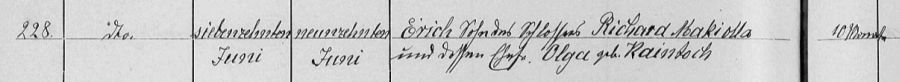 228. dto. siebenzehnten neunzehnten Erich Sohn des Schlossers Richard Makiolla 10 Monate
Juni Juni und dessen Ehefr. Olga geb. Kaintoch